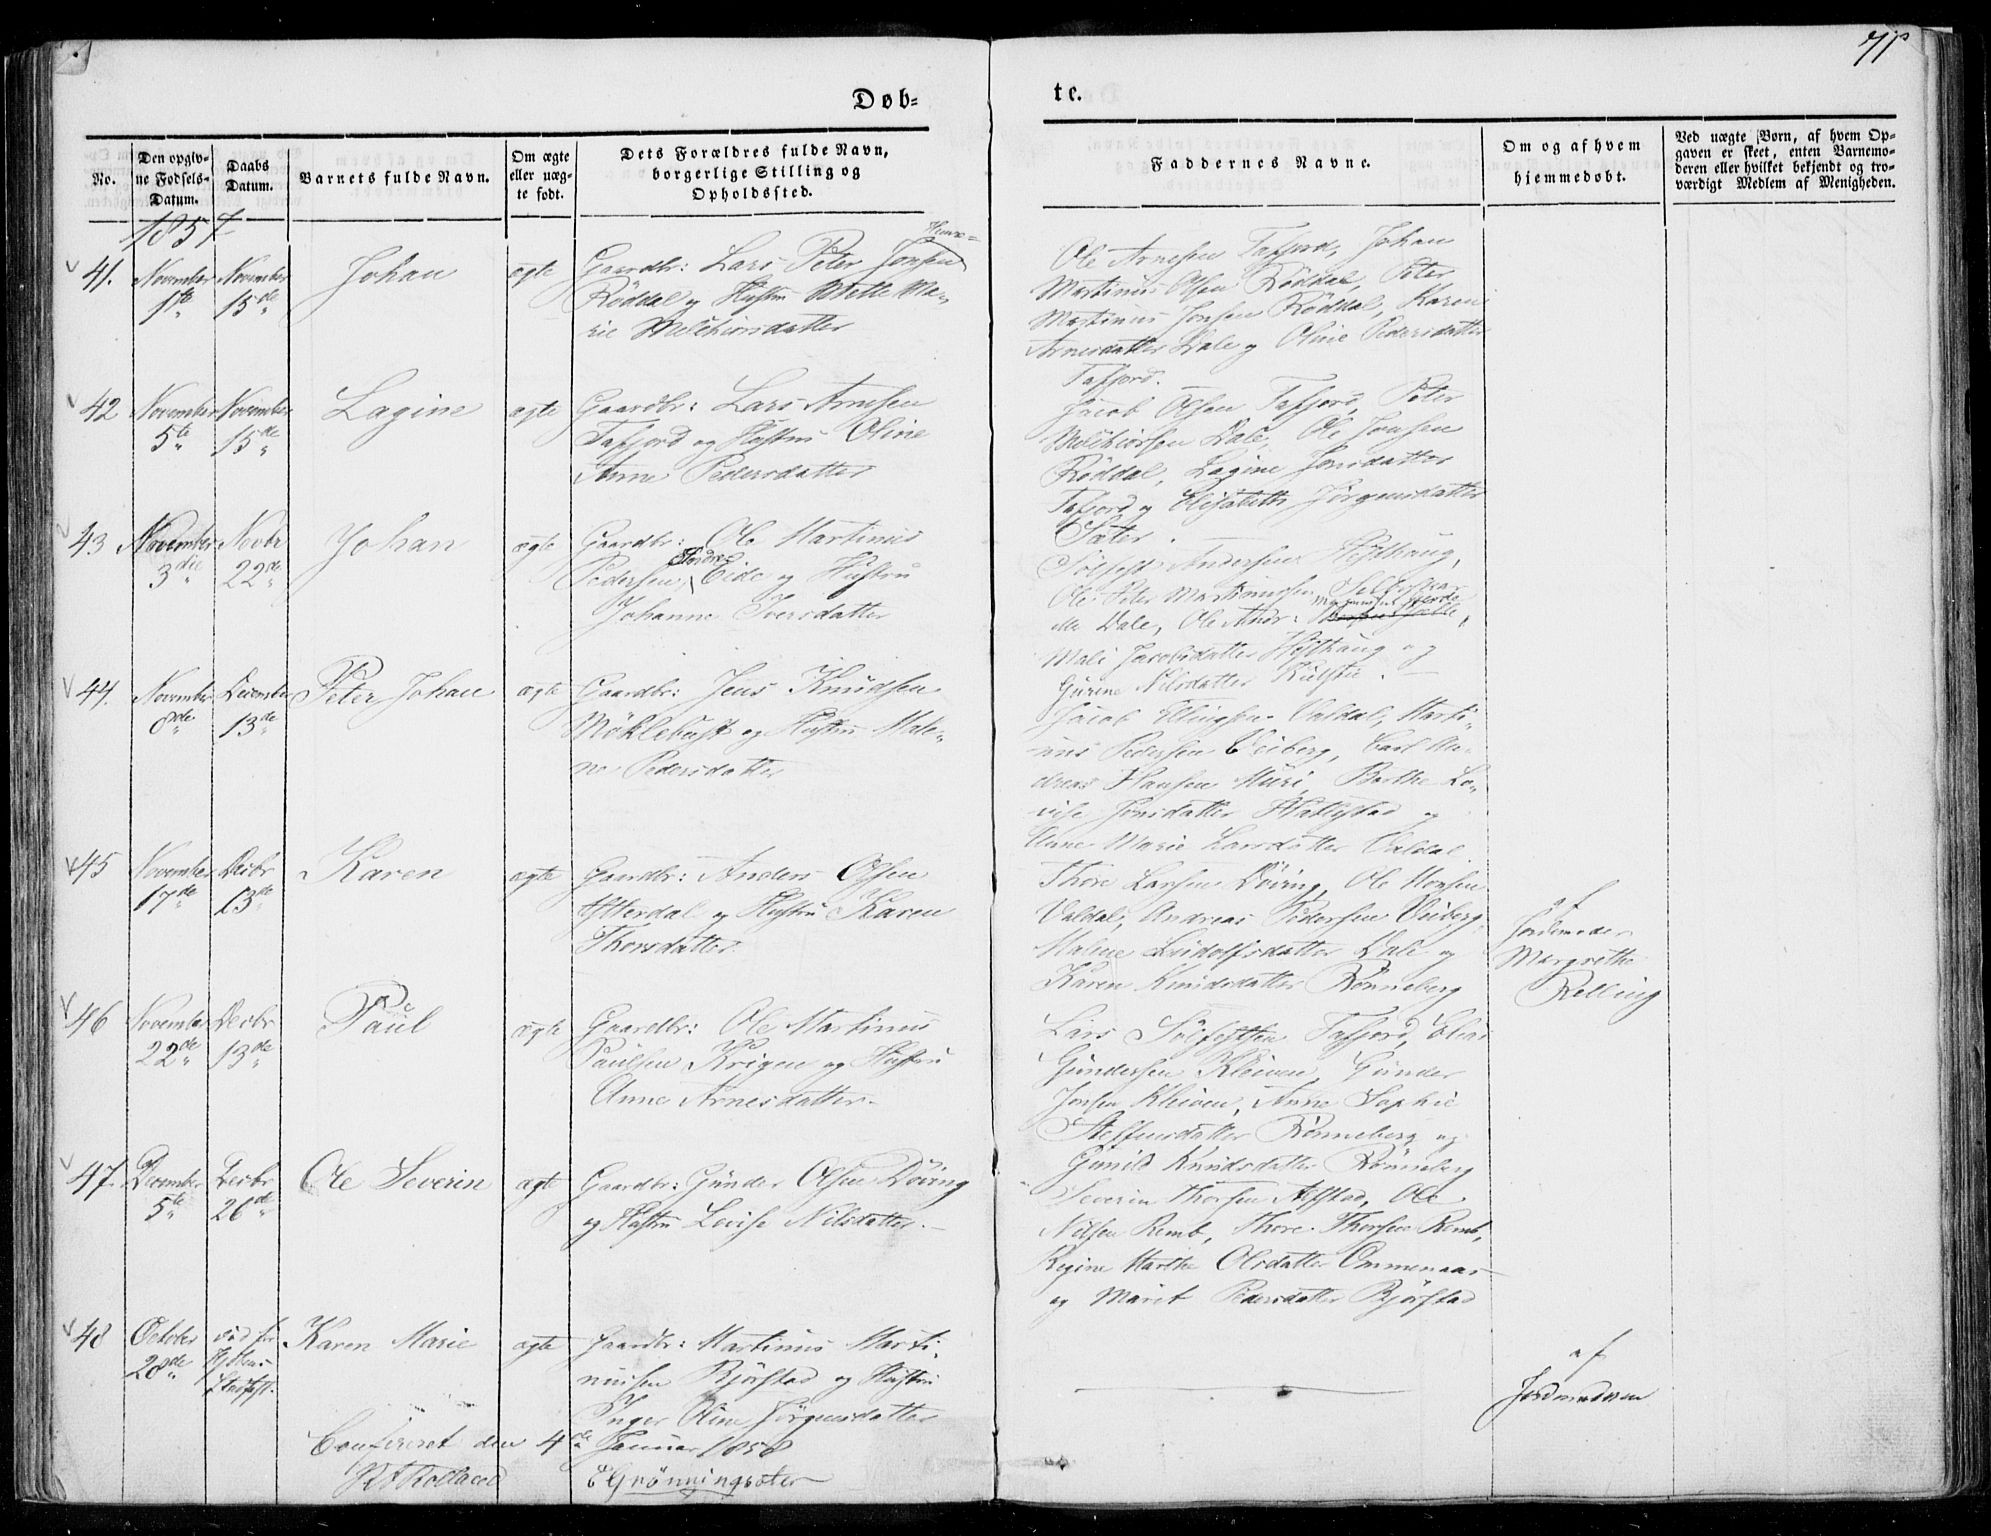 71
Døb-
te.
No.
Den opgiv-
ne Fødsels-
Datum.
Daabs
Datum.
Barnets fulde Navn.
Om ægte
eller uæg-
te født.
Dets Forældres fulde Navn,
borgerlige Stilling og
Opholdssted.
Faddernes Navne.
Om og af hvem
hjemmedøbt.
Ved uægte Børn, af hvem Op-
gaven er skeet, enten Barnemo-
deren eller hvilket bekjendt og tro-
værdigt Medlem af Menigheden.
1857
41.
November
1ste
November
15de
Johan
ægte
Gaardbr: Lars Peter Jonsen
Röddal og Hustru Mette Ma-
rie Melchiorsdatter
Ole Arnesen Tafjord, Johan
Martinus Olsen Röddal, Peter
Martinus Jonsen Röddal, Karen
Arnesdatter Dale og Oline Pedersdatter
Tafjord.
42
November
5te
November
15de
Lagine
ægte
Gaardbr: Lars Arnesen
Tafjord og Hustru Oline
Anne Pedersdatter
Jacob Olsen Tafjord, Peter
Melchiorsen Dale, Ole Jonsen
Röddal, Lagine Jonsdatter
Tafjord og Elisabeth Jörgensdatter
Sæter.
43
November
3die
Novbr
22de
Johan
ægte
Gaardbr: Ole Martinus
Pedersen Eide og Hustru
Johanne Iversdatter
Sölfest Andersen Hesthaug,
Ole Peter Martinussen
Dale, Ole Andr:
Mali Jacobsdatter Hesthaug og
Gurine Nilsdatter
44.
November
8de
December
13de
Peter Johan
ægte
Gaardbr: Jens Knudsen
Möklebust og Hustru Male-
ne Pedersdatter
Jacob Ellingsen Valdal, Marti-
nus Pedersen Veiberg, Carl An-
dreas Hansen Muri, Berthe Lo-
vise Jonsdatter Hallestad og
Anne Marie Larsdatter Valdal.
45
November
17de
Decbr
13de
Karen
ægte
Gaardbr: Anders Olsen
Ytterdal og Hustru Karen
Thoresdatter.
Thore Larsen Döving, Ole Monsen
Valdal, Andreas Pedersen Veiberg,
Malene Ludolfsdatter Dale og
Karen Knudsdatter Rönneberg
af
Jordmoder
Margrethe
Relling
46
November
22de
Decbr
13de
Paul
ægte
Gaardbr: Ole Martinus
Paulsen Krigen og Hustru
Anne Arnesdatter.
Lars Sölfestsen Tafjord, Elias
Gundersen Kleiven, Gunder
Jonsen Kleiven, Anne Sophie
Steffensdatter Rönneberg og
Gunild Knudsdatter Rönneberg
47.
December
5te
Decbr
26de
Ole Severin
ægte
Gaardbr: Gunder Olsen Döving
og Hustru Lovise Nilsdatter.
Severin Thorsen Alstad, Ole
Nilsen Remb, Thore Thorsen Remb,
Regine Marthe Olsdatter Ommenaas
og Marit Pedersdatter Björstad
48
October
28de
Karen Marie
ægte
Gaardbr: Martinus Marti-
nussen Björstad og Hustru
Inger Oline Jörgensdatter
af
Jordmoderen
Confereret den 4de Januar 1858
E Grönningsæter